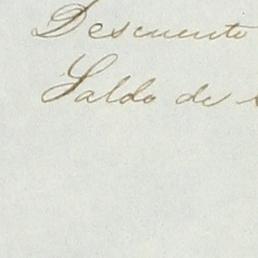 Descuento
Saldo de